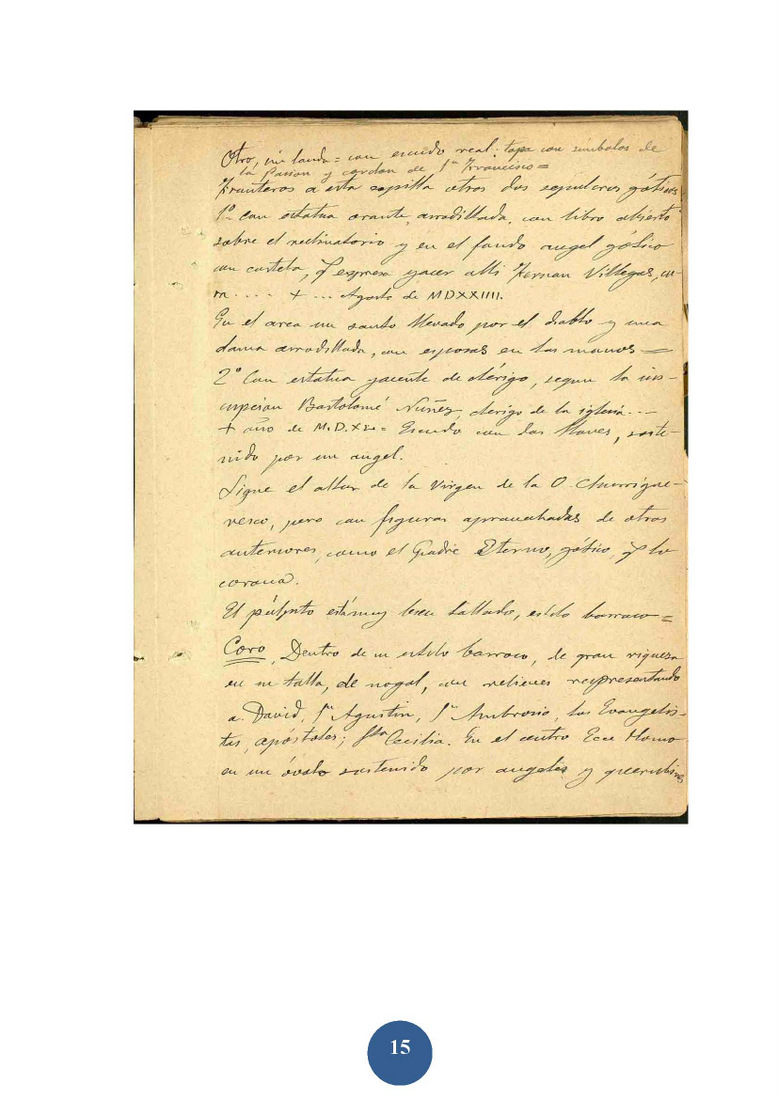 Otro, sin lauda = con escudo real: tapa con símbolos de
la Pasion y cordon de Sn Francisco =
Fronteros a esta capilla otros dos sepulcros góticos
1º con estatua orante, arrodillada, con libro abierto
sobre el reclinatorio y en el fondo angel gótico
con cartela, q expresa yacer alli Hernan Villegas, cu-
ra .... + ... Agosto de MDXXIIII.
En el arca un santo llevado por el diablo y una
dama arrodillada, con esposas en las manos =
2º Con estatua yacente de clérigo, segun la ins-
cripcion Bartolomé Nuñez, clerigo de la iglesia ...
+ año de M.D.XX = Escudo con las llaves, soste-
nido por un angel.
Sigue el altar de la Virgen de la O. Churrigue-
resco, pero con figuras aprovechadas de otros
anteriores, como el Padre Eterno, gótico, q lo
corona.
El púlpito está muy bien tallado, estilo barroco =
Coro. Dentro de un estilo barroco, de gran riqueza
en su talla, de nogal, con relieves representando
a David, Sn Agustin, Sn Ambrosio, los Evangelis-
tas, apóstoles; Sta Cecilia. En el centro Ecce Homo
en un óvalo sostenido por angeles y querubines
15